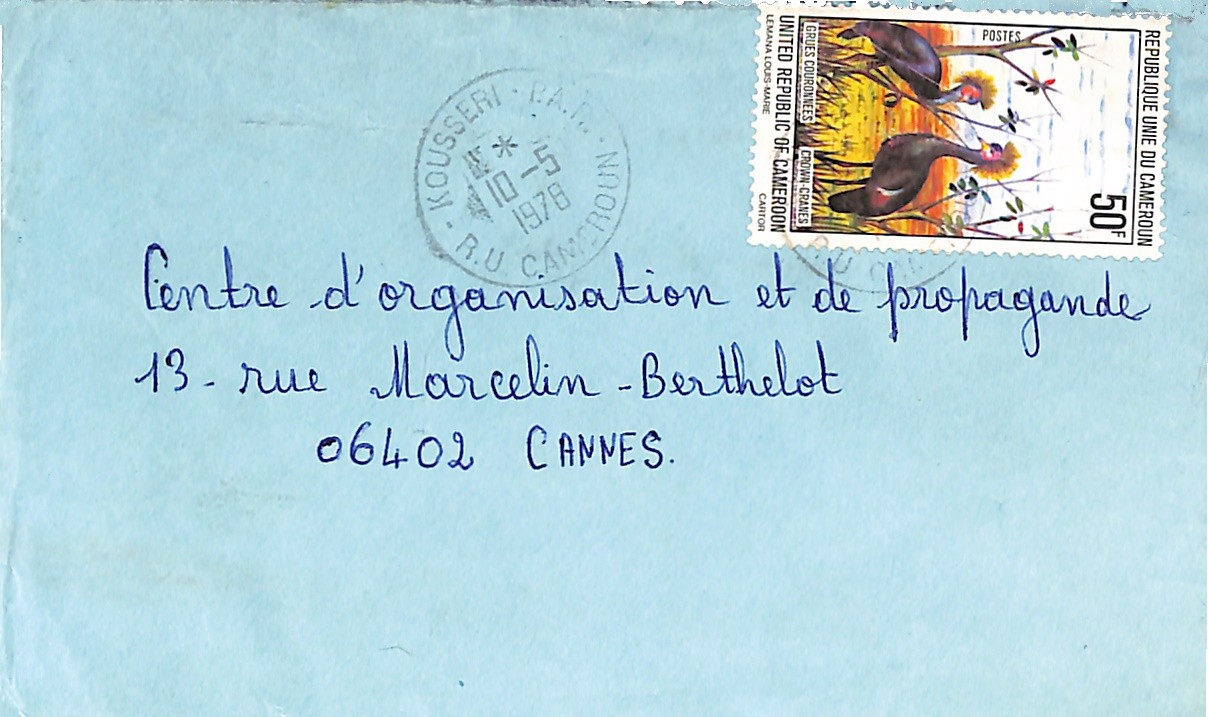 REPUBLIQUE UNIE DU CAMEROUN
50F
POSTES
GRUES COURONNEES CROWN-CRANES
UNITED REPUBLIC OF CAMEROON
LEMANA LOUIS-MARIE CARTOR
KOUSSERI - P.A.R. - NORD
10-5
1978
R.U. CAMEROUN
R.U.
Centre d'organisation et de propagande
13 - rue Marcelin - Berthelot
06402 CANNES.